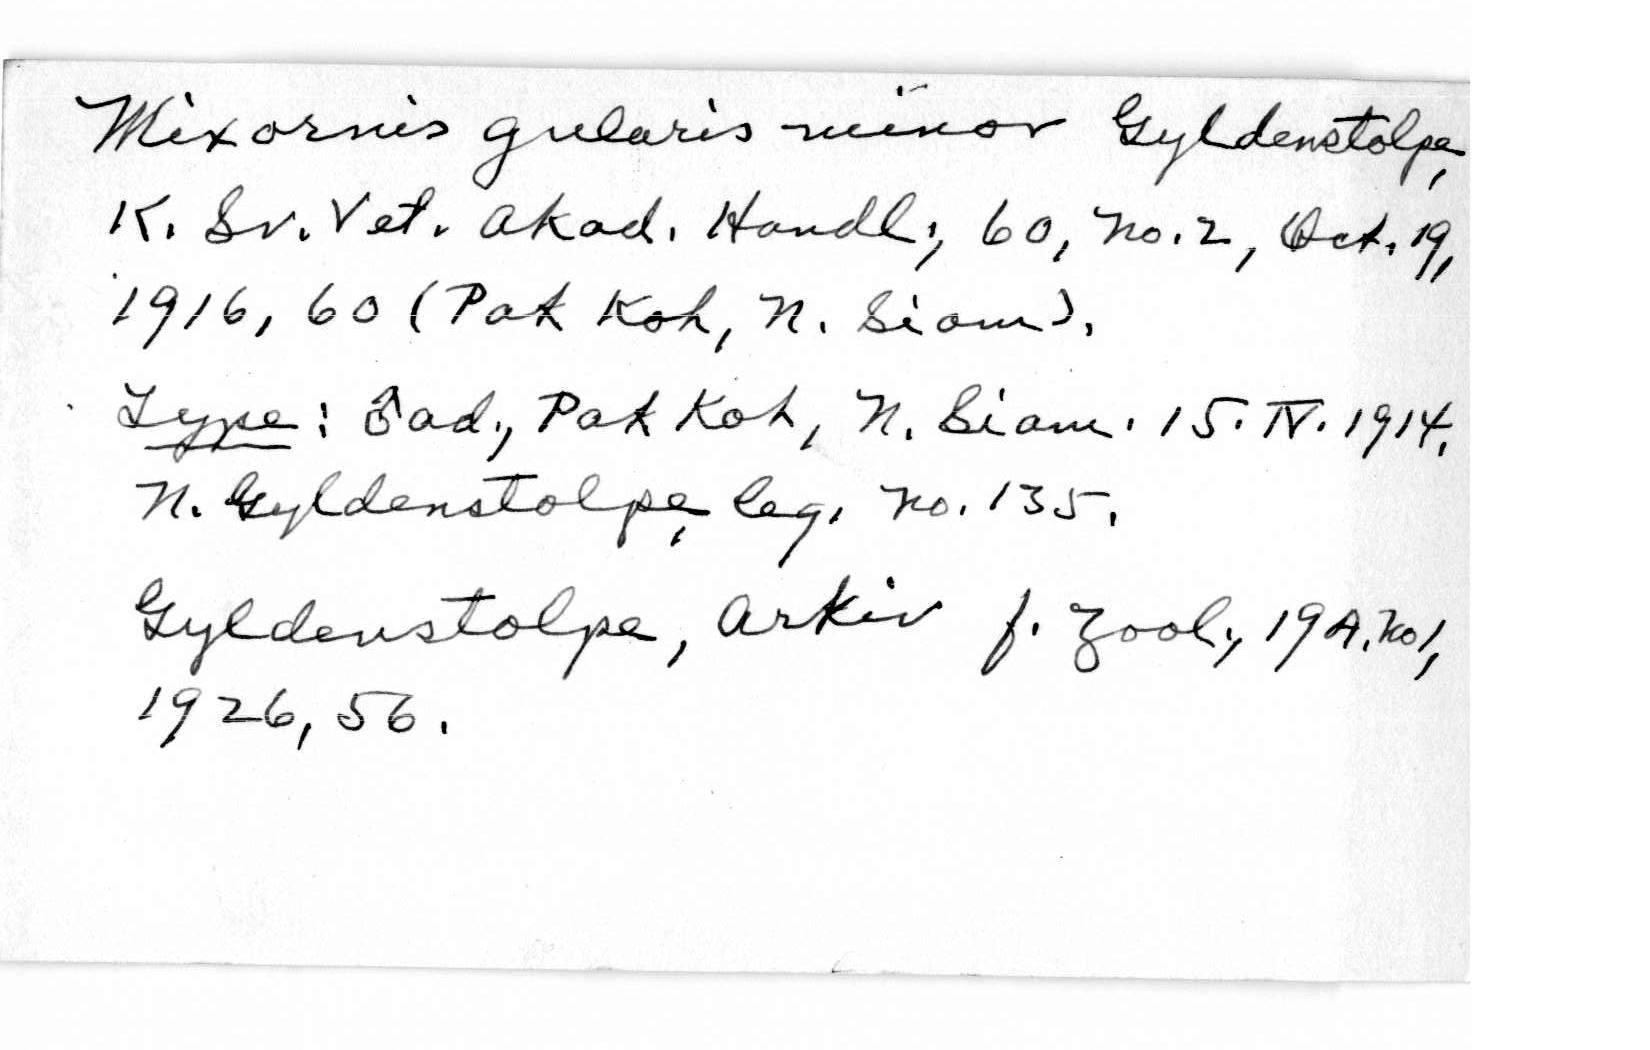 Mixornis gularis minor Gyldenstolpe,
K. Sv. Vet. Akad. Handl., 60, No. 2, Oct. 19,
1916, 60 (Pak Koh, N. Siam).
Type: ♂ ad., Pak Koh, N. Siam. 15. IV. 1914.
N. Gyldenstolpe, leg. No. 135.
Gyldenstolpe, Arkiv f. Zool., 19A. No 1,
1926, 56.